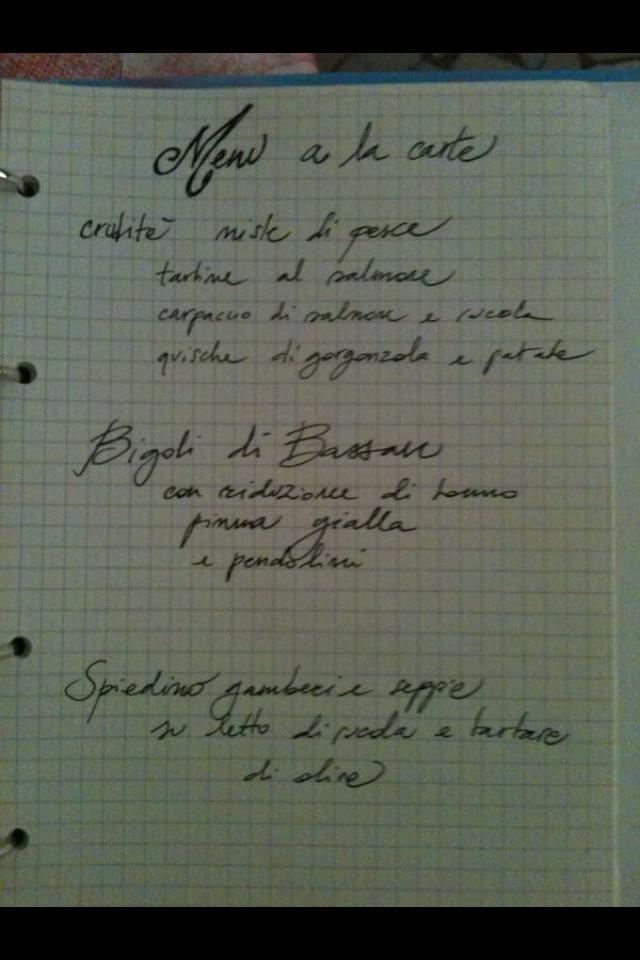 Menù a la carte
crudité miste di pesce
tartine al salmone
carpaccio di salmone e rucola
quische di gorgonzola e patate
Bigoli di Bassano
con riduzione di tonno
pinna gialla
e pendolini
Spiedino gamberi e seppie
su letto di rucola e tartare
di olive